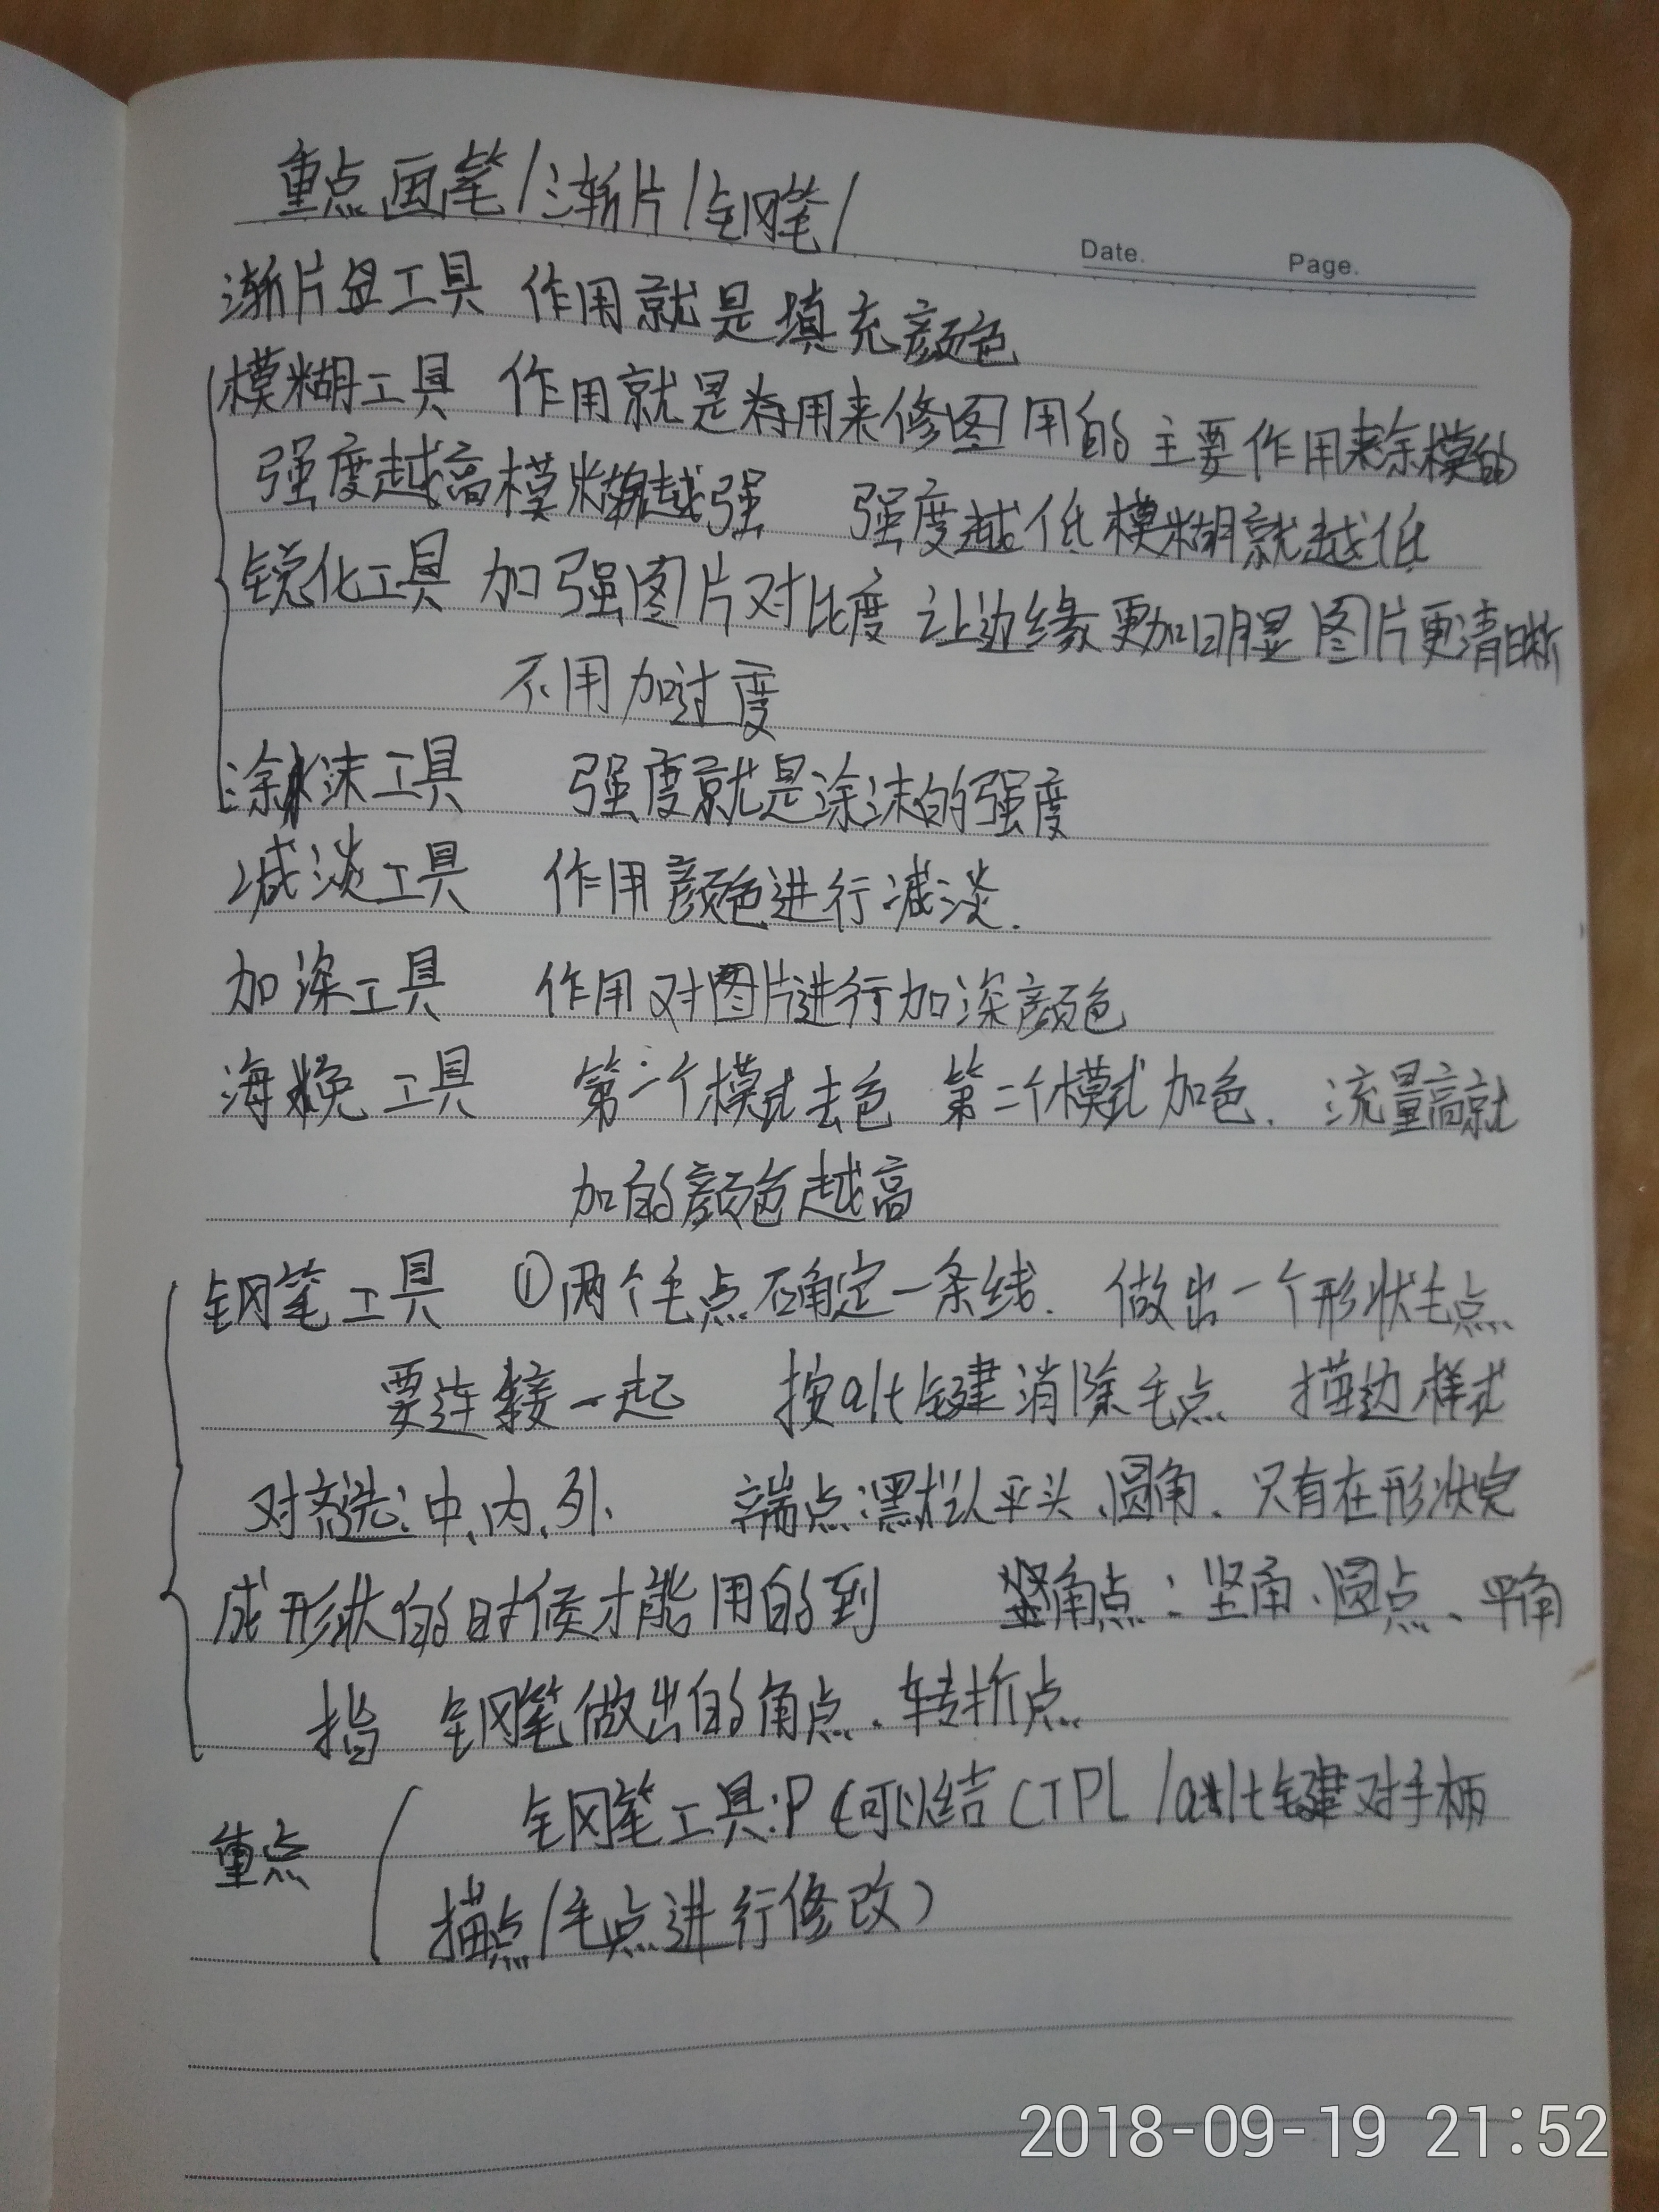 重点画笔/渐片/钢笔/
Date. Page.
渐片盘工具 作用就是填充颜色
模糊工具 作用就是将用来修图用的 主要作用来涂模的
强度越高模糊越强 强度越低模糊就越低
锐化工具 加强图片对比度 让边缘更加明显 图片更清晰
不用加过度
涂沫工具 强度就是涂沫的强度
减淡工具 作用颜色进行减淡.
加深工具 作用对图片进行加深颜色
海绵工具 第一个模式去色 第二个模式加色. 流量高就
加的颜色越高
钢笔工具 ①两个毛点确定一条线. 做出一个形状毛点
要连接一起 按alt键消除毛点 描边样式
对齐选:中、内、外、 端点:黑认平头、圆角. 只有在形状完
成形状的时候才能用的到 竖角点:竖角、圆点、平角
指 钢笔做出的角点、转折点
重点 钢笔工具:P (可以结CTPL/alt键对手柄
描点/毛点进行修改)
2018-09-19 21:52